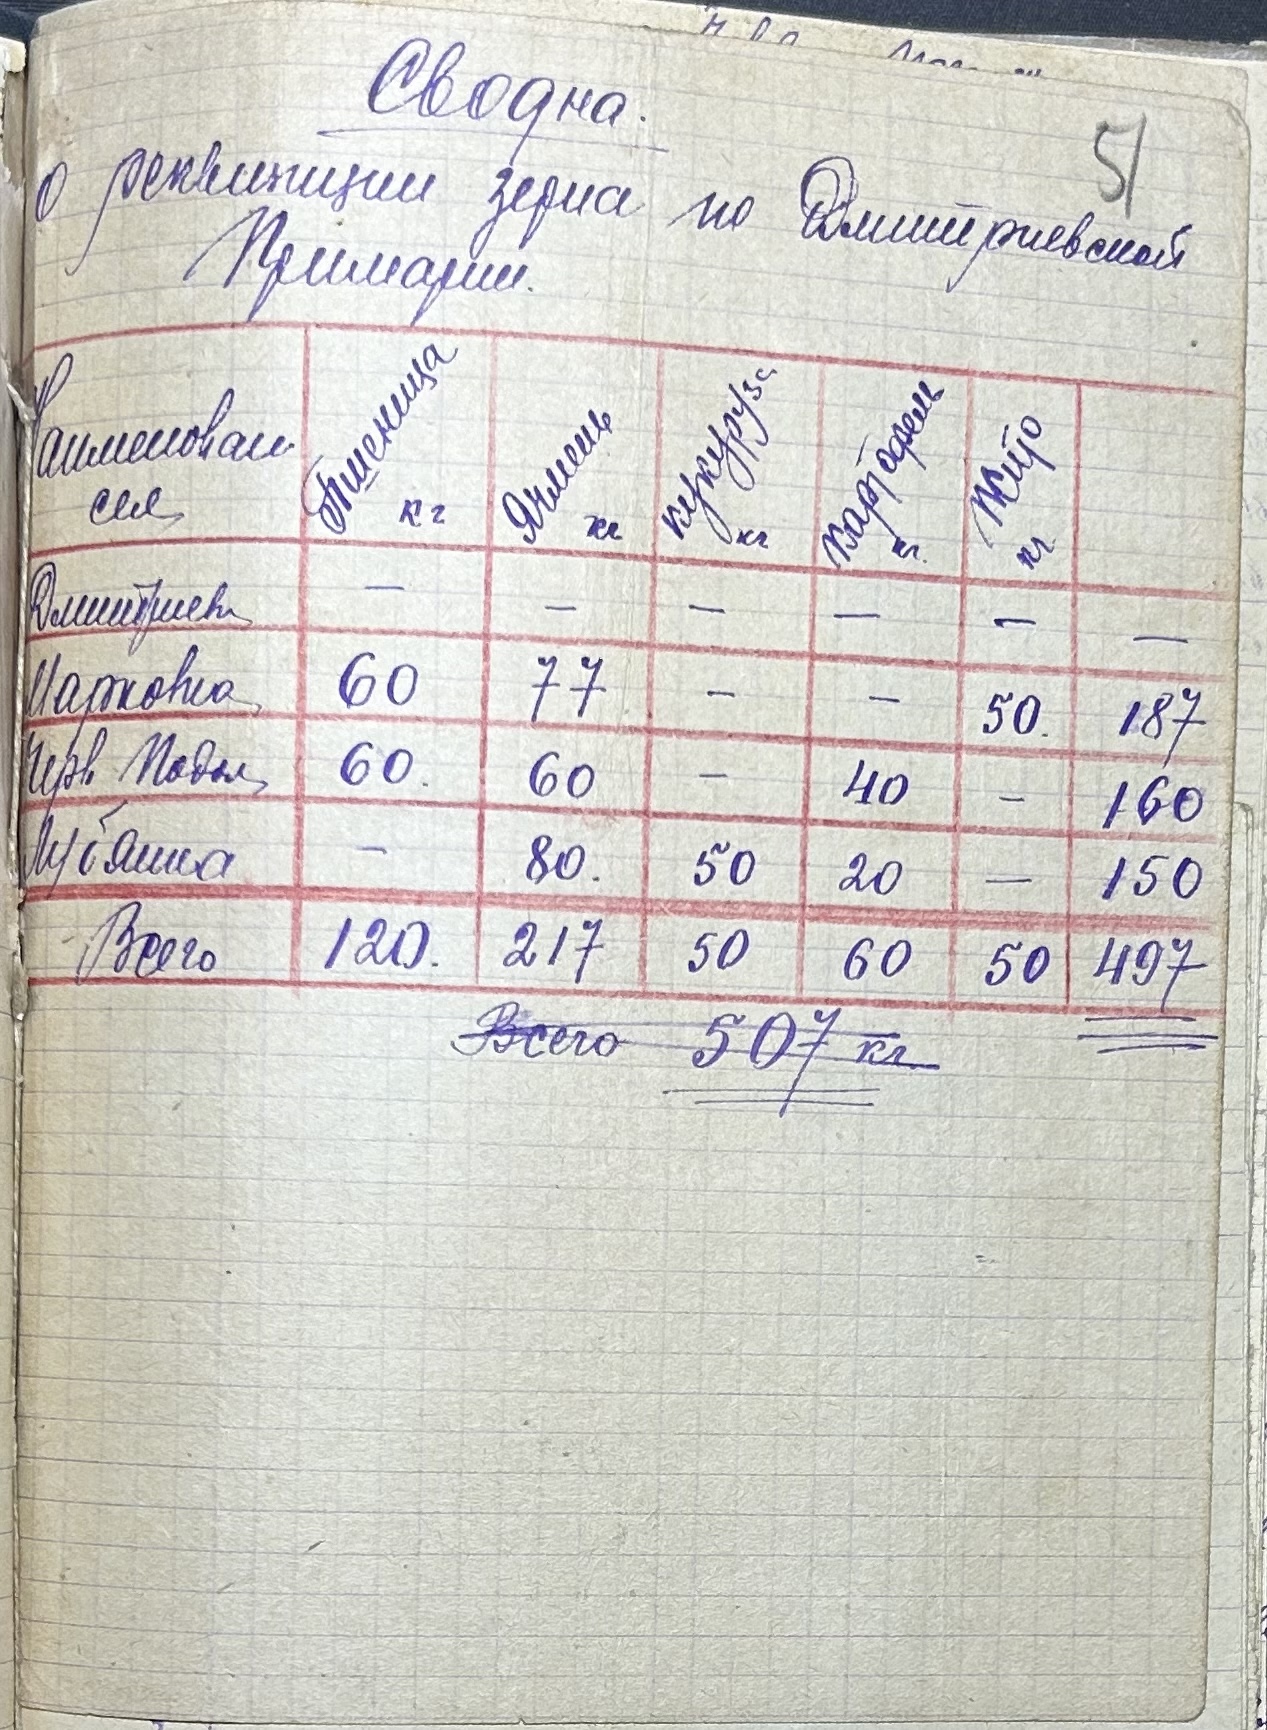 Сводка.
51
о реквизиции зерна по Дмитриевской
Примарии.
Наименован. сел | Пшеница кг | Ячмень кг | кукуруза кг | картофель кг. | Жито кг
Дмитриевк | – | – | – | – | – | –
Марковка | 60 | 77 | – | – | 50. | 187
Черв. Подол | 60. | 60 | – | 40 | – | 160
Лубянка | – | 80. | 50 | 20 | – | 150
Всего | 120. | 217 | 50 | 60 | 50 | 497
Всего 507 кг